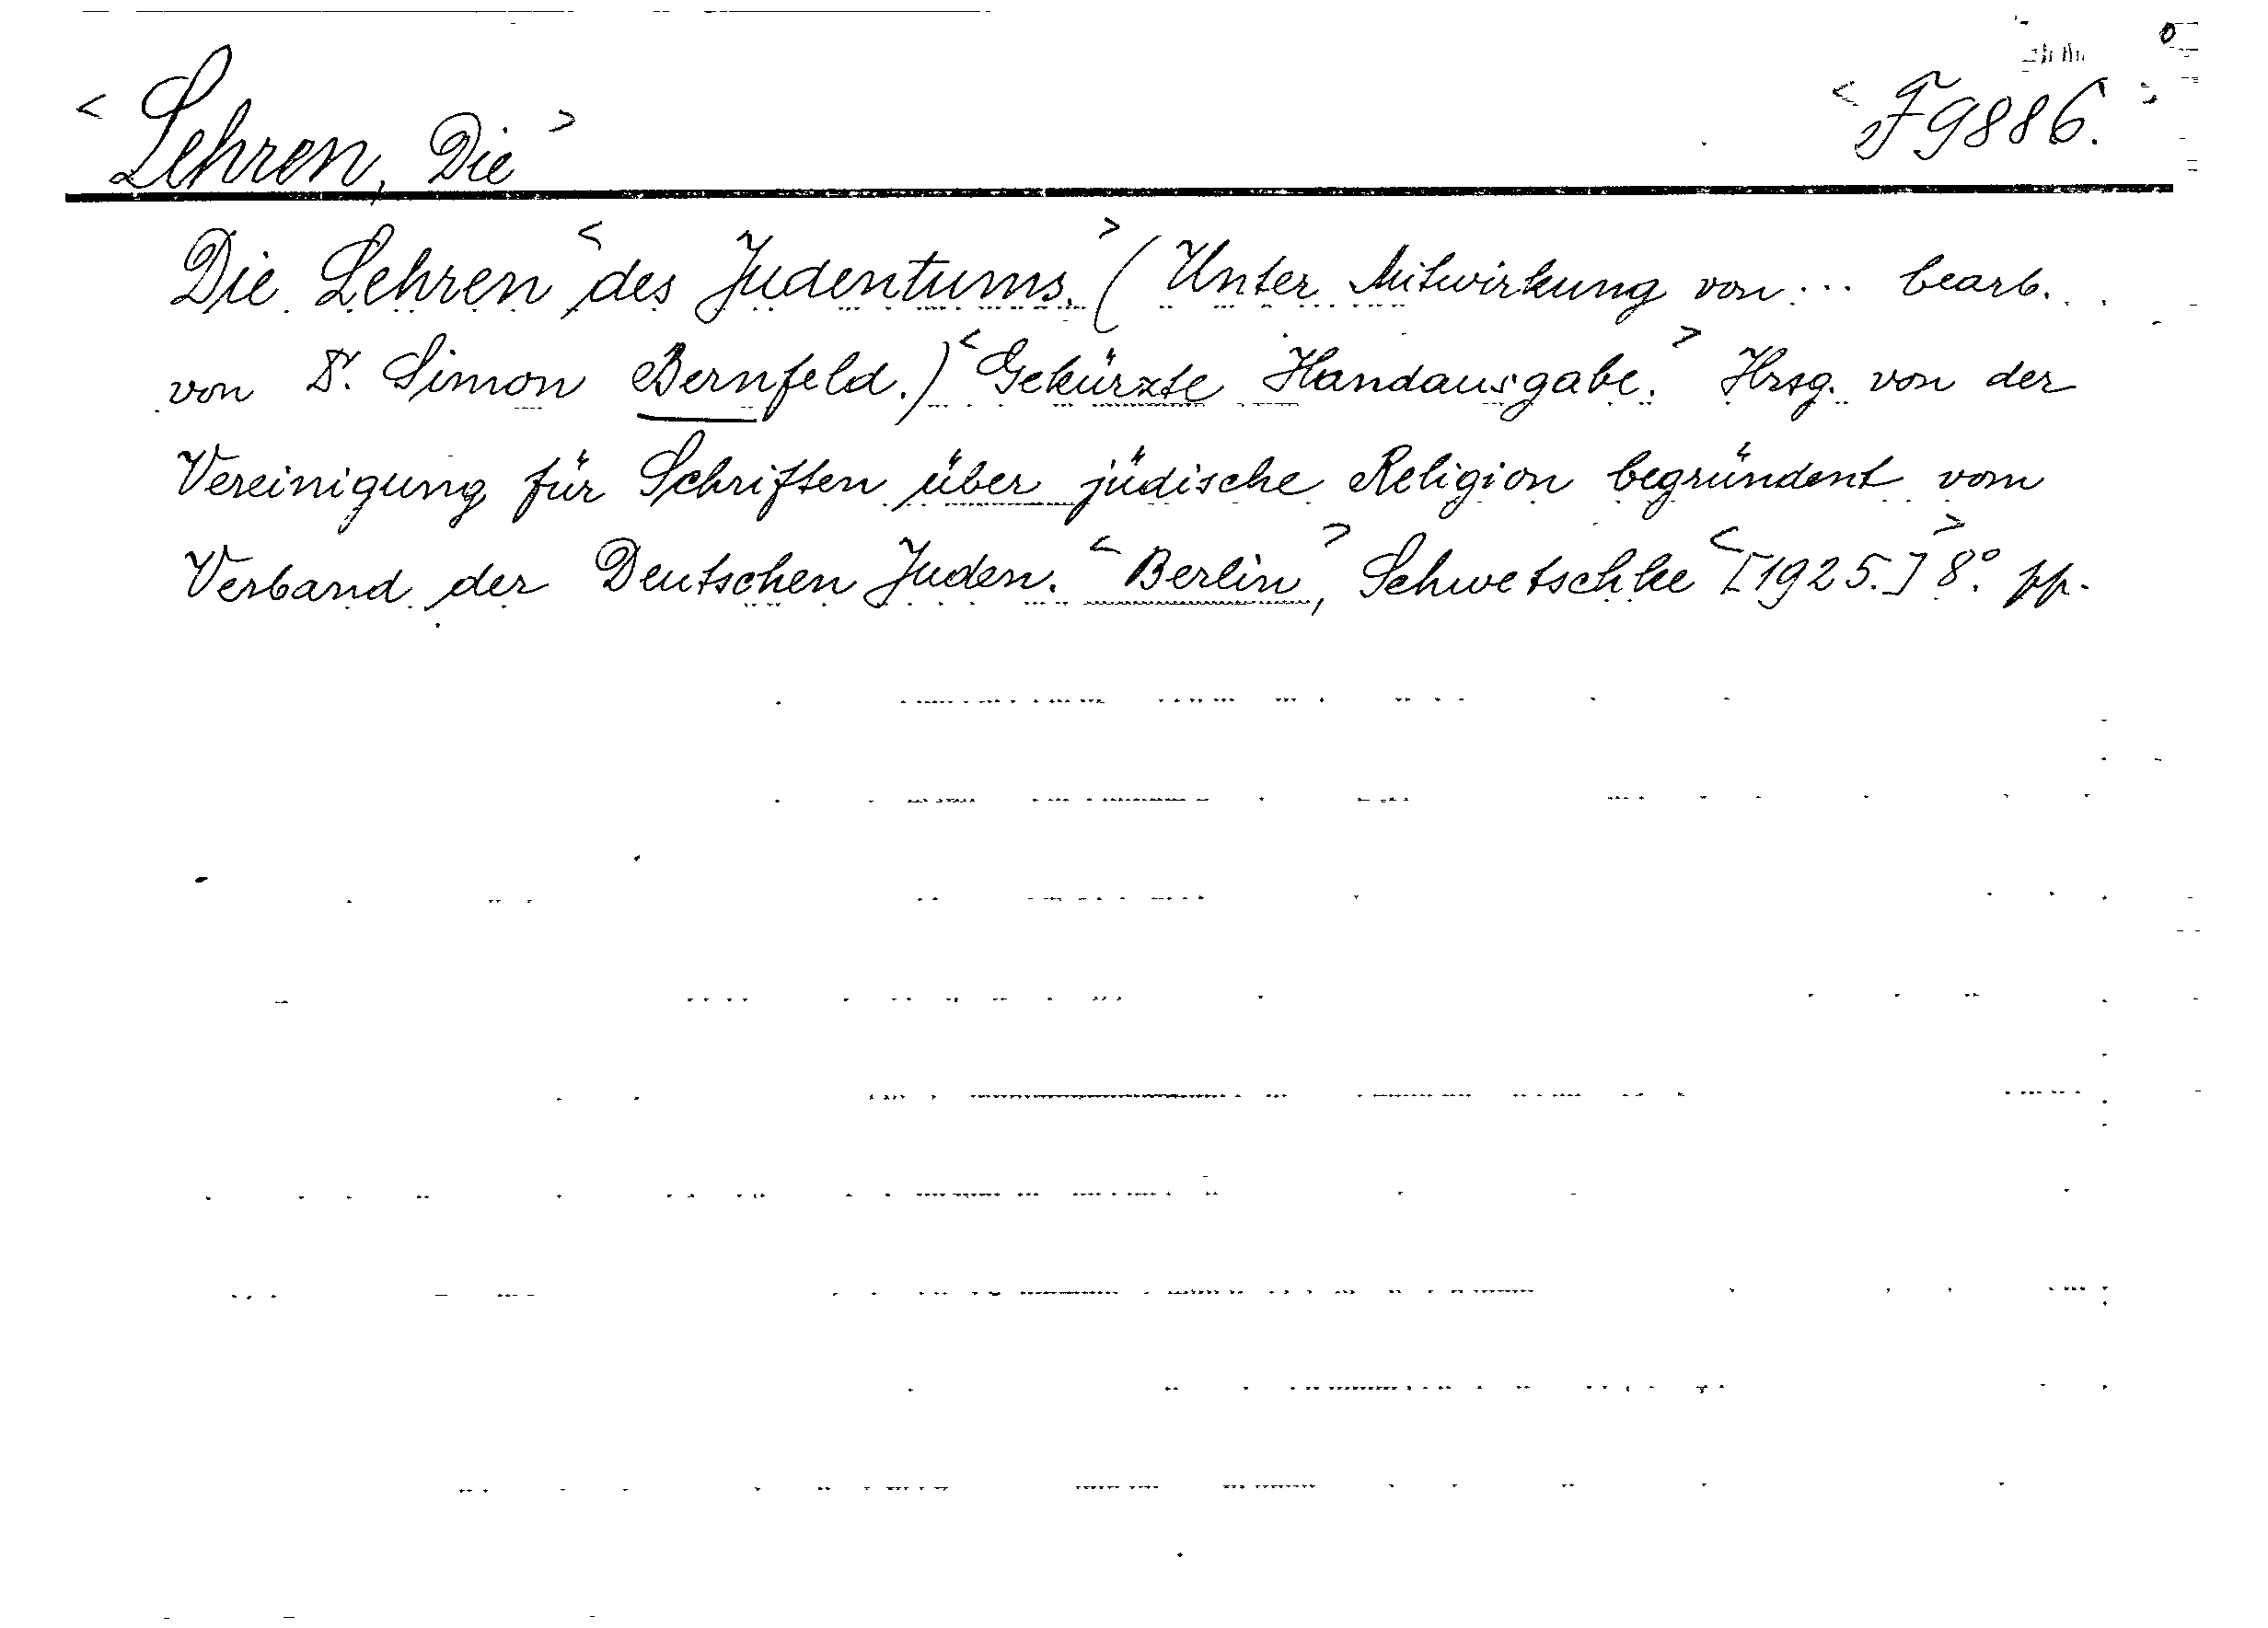 < Lehren, Die > < F 9886. >
Die Lehren < des Judentums. > (Unter Mitwirkung von ... bearb.
von Dr. Simon Bernfeld.) < Gekürzte Handausgabe. > Hrsg. von der
Vereinigung für Schriften über jüdische Religion begründent vom
Verband der Deutschen Juden. < Berlin, > Schwetschke < [1925.] > 8°. pp.